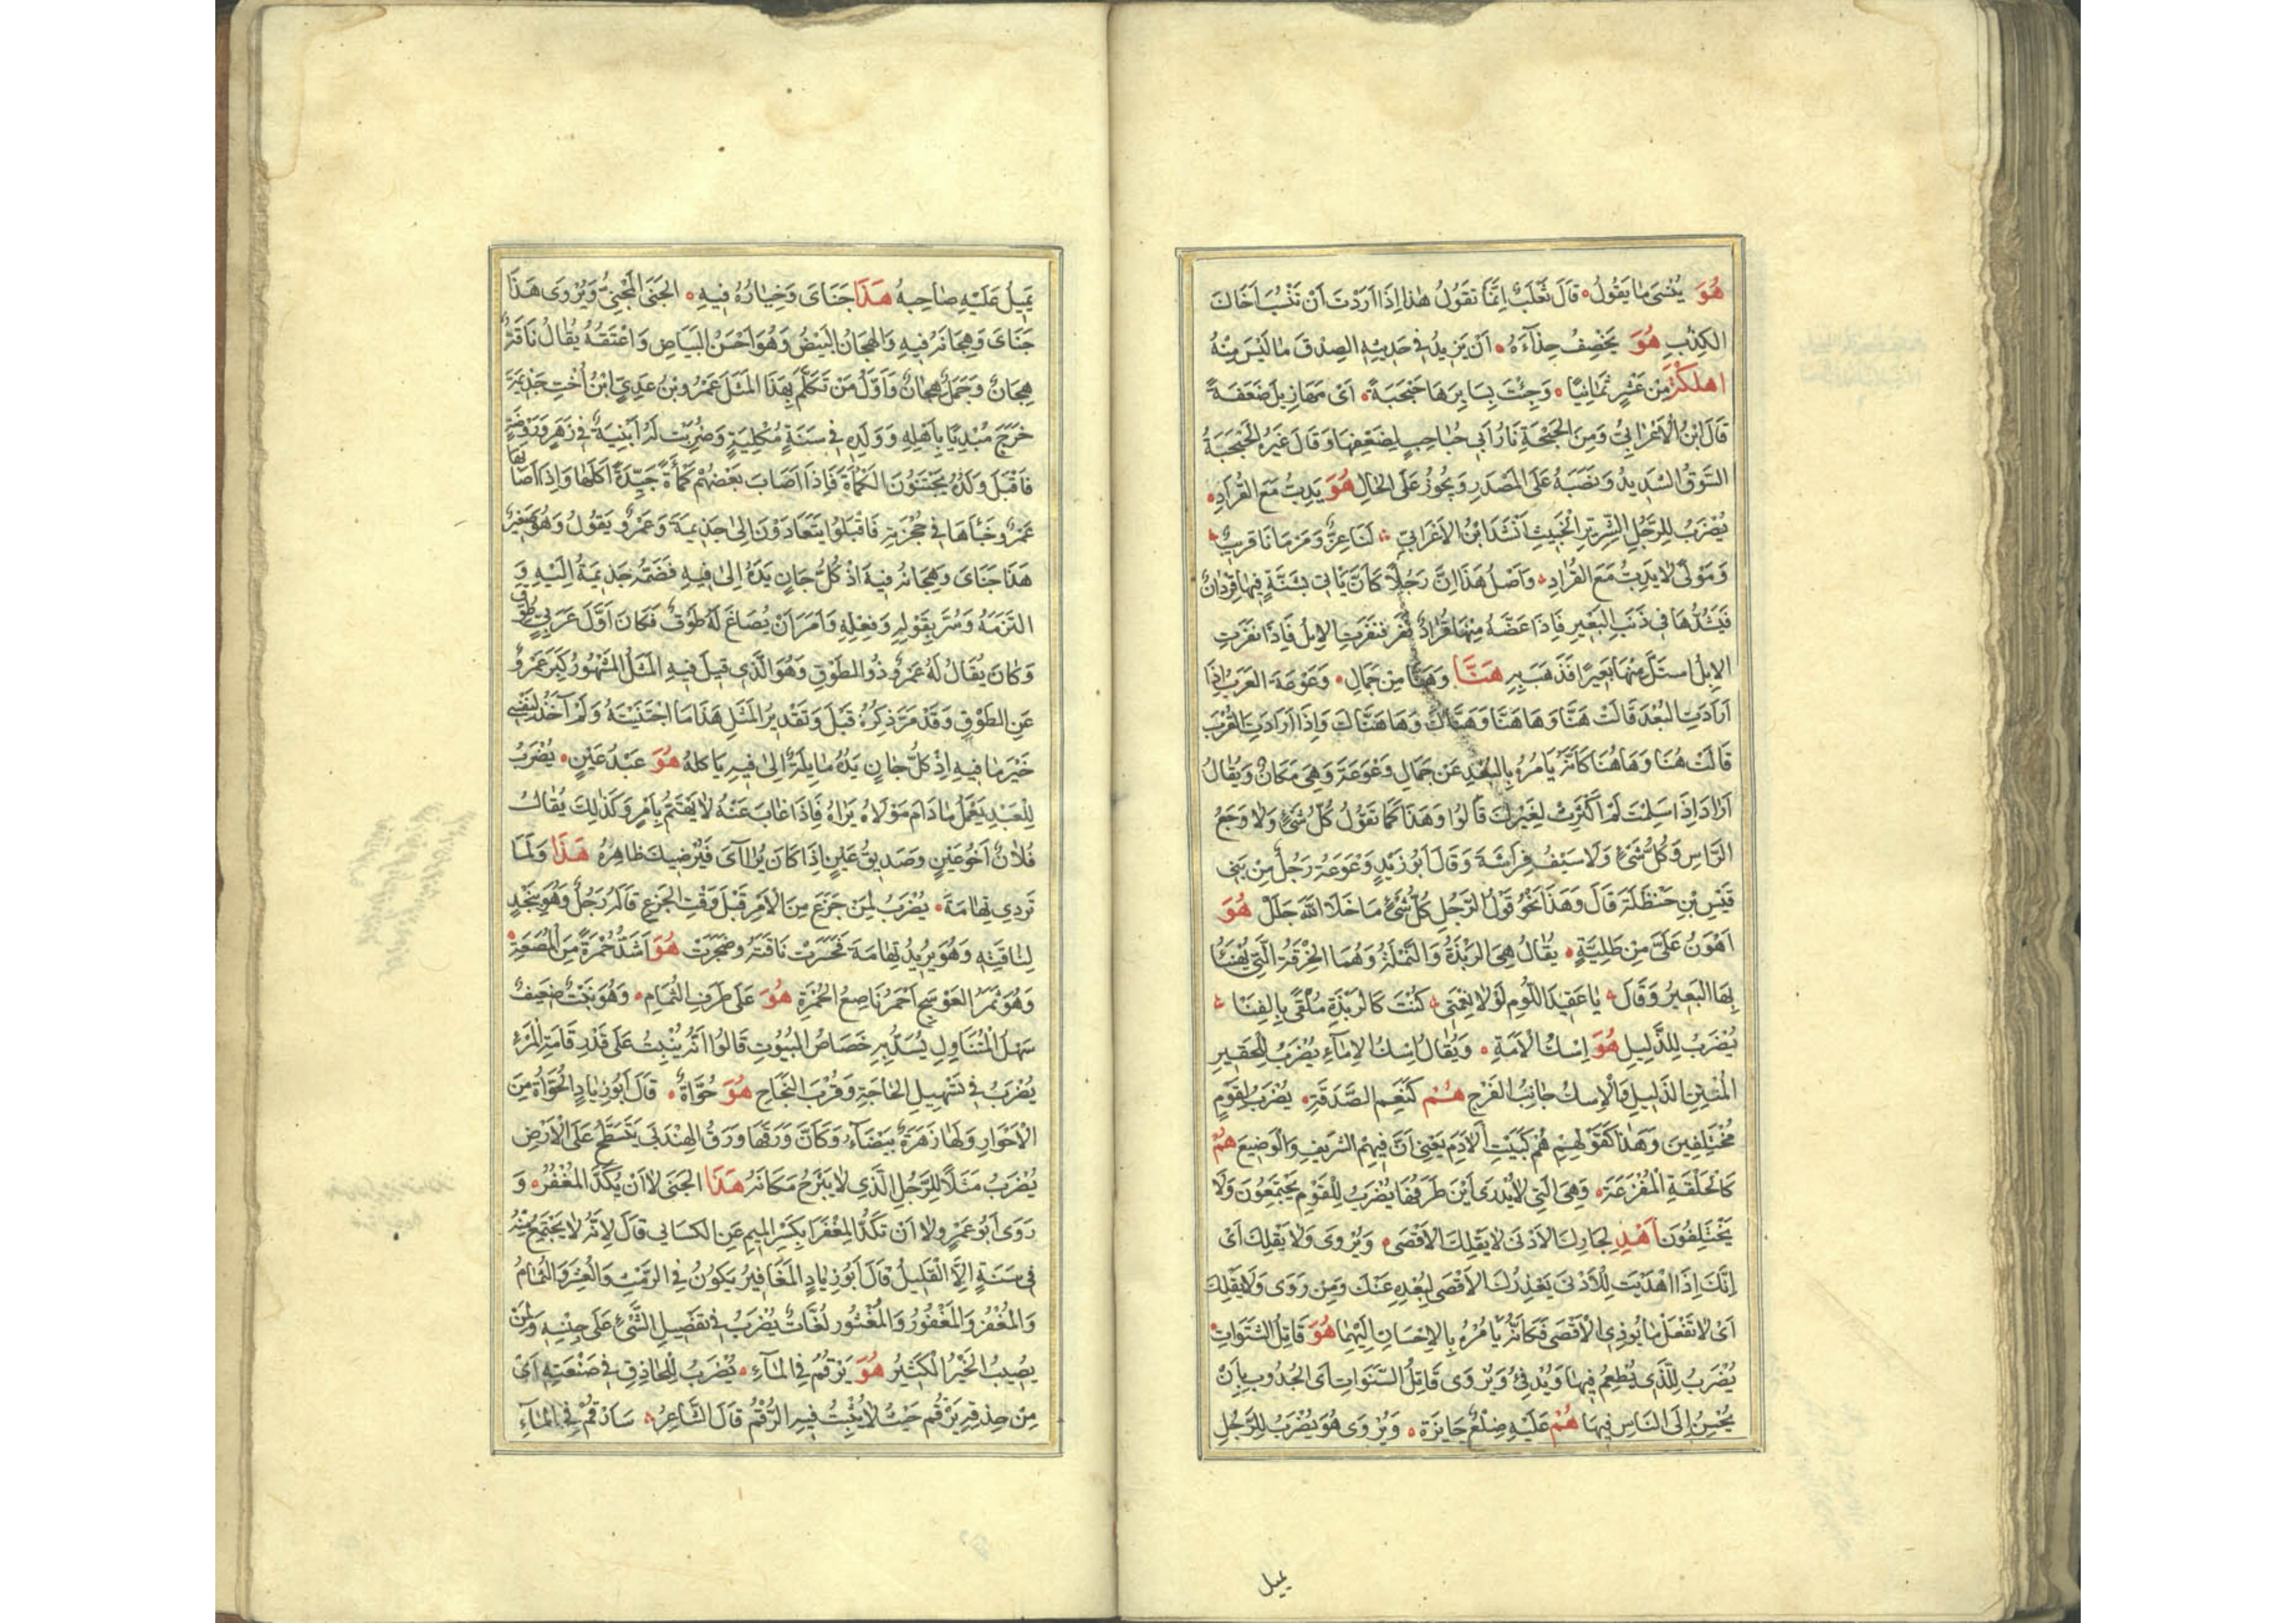 هُوَ يُنْسَى مَا يَقُولُ قَالَ ثَعْلَبٌ اِنَّمَا تَقُولُ هٰذا اِذَا اَرَدْتَ اَنْ تَنْسُبَ اَخَاكَ
الكِذْبِ هُوَ يَخْصِفُ حِذَآءَهُ اَنْ يَزِيدُ فِى حَدِيثِهِ الصِدْقَ مَا لَيْسَ مِنْهُ
اهلَكْتَ مِنْ عَشْرٍ ثَمَانِيًا وَجِئْتَ بِسَايِرِهَا حَبْحَبَةً اَىْ مَهَازِيلَ ضَعَفَةً
قَالَ ابْنُ الْاَعْرَابِىِّ وَمِنَ الحَبْحَبَةِ نَارُ اَبِى حُبَاحِبٍ لِضَعْفِهَا وَقَالَ غَيْرُهُ الحَبْحَبَةُ
السَّوْقُ الشَدِيدُ وَنَصَبَهُ عَلَى المَصْدَرِ وَيَجُوزُ عَلَى الحَالِ هُوَ يَدِبُّ مَعَ القُرَادِ
يُضْرَبُ لِلرَّجُلِ الشِّرِيرِ الخَبِيثِ اَنْشَدَ ابْنُ الاَعْرَابِىّ لَنَا عِزٌّ وَمَرْمَانَا قَرِيبٌ
وَمَوْلًى لَا يَدِبُّ مَعَ القُرَادِ وَاَصْلُ هَذَا اِنَّ رَجُلاً كَانَ يَأتِى بِشَنَّةٍ فِيهَا قِرْدَانٌ
فَيَشُدُّهَا فِى ذَنَبِ البَعِيرِ فَاِذَا عَضَّهُ مِنْهَا قُرَادٌ نَفَرَ فَنَفَرَتِ الاِبِلُ فَاِذَا نَفَرَتِ
الاِبِلُ اسْتَلَّ مِنْهَا بَعِيرًا فَذَهَبَ بِهِ هَنَّا وَهَنَّا مِنْ جَمَالِ وَعْوَعَهْ العَرَبُ اِذَا
اَرَادَتِ البُعْدَ قَالَتْ هَنَّا وَهَا هَنَّا وَهَنَّاكَ وَهَا هَنَّاكَ وَاِذَا اَرَادَتِ القُرْبَ
قَالَتْ هُنَا وَهَا هُنَا كَاَنَّهُ يَامُرُهُ بِالبُعْدِ عَنْ جَمَالِ وَعْوَعَهْ وَهِىَ مَكَانٌ وَيُقَالُ
اَرَادَ اِذَا سَلِمْتَ لَمْ اَكْتَرِثْ لِغَيْرِكَ قَالُوا وَهَذَا كَمَا تَقُولُ كُلُّ شَىْءٍ وَلَا وَجَعُ
الرَّاسِ وَكُلُّ شَىْءٍ وَلَا سَيْفُ فِرَاشَةَ وَقَالَ اَبُو زَيْدٍ وَعْوَعَهْ رَجُلٌ مِنْ بَنِى
قَيْسِ بْنِ حَنْظَلَةَ قَالَ وَهَذَا نَحْوُ قَوْلِ الرَّجُلِ كُلُّ شَىْءٍ مَا خَلَا اللَّهَ جَلَلٌ هُوَ
اَهْوَنُ عَلَىَّ مِنْ طَلِيَّةٍ يُقَالُ هِىَ الرِبْذَةُ وَالثَمْلَةُ وَهُمَا الخِرْقَةُ الَّتِى يُهْنَأُ
بِهَا البَعِيرُ وَقَالَ يَا عَقِيدَ اللُّومِ لَوْلَا نِعْمَتِى كُنْتَ كَالرِبْذَةِ مُلْقًى بِالفِنَا
يُضْرَبُ لِلذَّلِيلِ هُوَ اِسْكُ الْاَمَةِ وَيُقَالُ اِسْكُ الاِمَاءِ يُضْرَبُ لِلْحَقِيرِ
الْمُنْتِنِ الذَّلِيلِ وَالْاِسْكُ جَانِبُ الفَرْجِ هُمْ كَنَعَمِ الصَّدَقَةِ يُضْرَبُ لِقَوْمٍ
مُخْتَلِفِينَ وَهٰذا كَقَوْلِهِمْ هُمْ كَبَيْتِ الْاَدَمِ يَعْنِى اَنَّ فِيهِمِ الشَرِيفَ وَالْوَضِيعَ هُمْ
كَالْحَلْقَةِ الْمُفْرَغَةِ وَهِىَ الَّتِى لَا يُدْرَى اَيْنَ طَرَفُهَا يُضْرَبُ لِلْقَوْمِ يَجْتَمِعُونَ وَلَا
يَخْتَلِفُونَ اَهْدِ لِجَارِكَ الاَدْنَى لَا يَقْلِكَ الاَقْصَى وَيُرْوَى وَلَا يَقْلِكَ اَىْ
اِنَّكَ اِذَا اَهْدَيْتَ لِلْاَدْنَى يَعْذِرُكَ الاَقْصَى لِبُعْدِهِ عَنْكَ وَمِنْ رَوَى وَلَا يَقْلِكَ
اَىْ لَا تَفْعَلْ مَا يُوذِى الْاَقْصَى فَكَانَّهُ يَامُرُهُ بِالاِحْسَانِ اِلَيْهِمَا هُوَ قَاتِلُ الشَتَوَاتِ
يُضْرَبُ لِلَّذِى يُطْعِمُ فِيهَا وَيُدْفِئُ وَيُرْوَى قَاتِلُ السَّنَوَاتِ اَى الجُدُوبِ بِاَنْ
يُحْسِنَ اِلَى النَاسِ فِيهَا هُمْ عَلَيْهِ ضِلَعٌ جَايِرَة وَيُرْوَى هُوَ يُضْرَبُ لِلرَّجُلِ
يميل
يَمِيلُ عَلَيْهِ صَاحِبهُ هَذَا جَنَاىَ وَخِيَارُهُ فِيهِ الجَنَى المَجْنِىُّ وَيُرْوَى هَذَا
جَنَاىَ وَهِجَانُهُ فِيهِ وَالهِجَانُ البَيْضُ وَهُوَ اَحْسَنُ البَيَاضِ وَاَعْتَقُهُ يُقَالُ نَاقَةٌ
هِجَانٌ وَجَمَلٌ هِجَانٌ وَاَوَّلُ مَنْ تَكَلَّمَ بِهَذَا المَثَلَ عَمْرُو بْنُ عَدِىٍّ ابْنُ اُخْتِ جَذِيمَةَ
خَرَجَ مُبْدِيًا بِاَهْلِهِ وَوَلَدِهِ فِى سَنَةٍ مُكْلِيَةٍ وَضُرِبَتْ لَهُ اَبْنِيَةٌ فِى زَهَرٍ وَرَوْضَةٍ
فَاَقْبَلَ وَلَدُهُ يَجْتَنُونَ الكَمْأَةَ فَاِذَا اَصَابَ بَعْضُهُمْ كَمْأَةً جَيِّدَةً اَكَلَهَا وَاِذَا اَصَابَهَا
عَمْرٌو خَبَأَهَا فِى حُجْزَتِهِ فَاَقْبَلُوا يَتَعَادَوْنَ اِلَى جَذِيمَةَ وَعَمْرٌو يَقُولُ وَهُوَ صَغِيرٌ
هَذَا جَنَاىَ وَهِجَانُهُ فِيهْ اِذْ كُلُّ جَانٍ يَدُهُ اِلَى فِيهِ فَضَمَّهُ جَذِيمَةُ اِلَيْهِ وَ
التَزَمَهُ وَسُرَّ بِقَوْلِهِ وَفِعْلِهِ وَاَمَرَ اَنْ يُصَاغَ لَهُ طَوْقٌ فَكَانَ اَوَّلَ عَرَبِىٍّ طُوِّقَ
وَكَانَ يُقَالُ لَهُ عَمْرٌو ذُو الطَوْقِ وَهُوَ الَّذِى قِيلَ فِيهِ المَثَلُ المَشْهُورُ كَبُرَ عَمْرٌو
عَنِ الطَوْقِ وَقَدْ مَرَّ ذِكْرُهُ قَبْلَ وَتَقْدِيرُ المَثَلِ هَذَا مَا اجْتَنَيْتُهُ وَلَمْ آخُذْ لِنَفْسِى
خَيْرَ مَا فِيهِ اِذْ كُلُّ جَانٍ يَدُهُ مَايِلَةٌ اِلَى فِيهِ يَاكلهُ هُوَ عَبْدُ عَيْنٍ يُضْرَبُ
لِلْعَبْدِ يَعْمَلُ مَا دَامَ مَوْلَاهُ يَرَاهُ فَاِذَا غَابَ عَنْهُ لَا يَهْتَمُّ بِاَمْرٍ وَكَذَلِكَ يُقَالُ
فُلَانٌ اَخُو عَيْنٍ وَصَدِيقُ عَيْنٍ اِذَا كَانَ يُرَآاى فَيُرْضِيكَ ظَاهِرُهُ هَذَا وَلَمَّا
تَرِدِى تِهَامَةَ يُضْرَبُ لِمَنْ جَزَعَ مِنَ الاَمْرِ قَبْلَ وَقْتِ الجَزَعِ قَالَهُ رَجُلٌ وَهُوَ بِنَجْدٍ
لِنَاقَتِهِ وَهُوَ يُرِيدُ تِهَامَةَ فَحَسَرَتْ نَاقَتُهُ وَضَجِرَتْ هُوَ اَشَدُّ حُمْرَةً مِنَ الْمُصَعَةِ
وَهُوَ ثَمَرُ العَوْسَجِ اَحْمَرُ نَاصِعُ الحُمْرَةِ هُوَ عَلَى طَرَفِ الثُمَامِ وَهُوَ نَبْتٌ ضَعِيفٌ
سَهْلُ الْمُتَنَاوِلِ يُسَدُّ بِهِ خَصَاصُ البُيُوتِ قَالُوا اَنَّهُ يَنْبُتُ عَلَى قَدْرِ قَامَةِ الْمَرْءِ
يُضْرَبُ فِى تَسْهِيلِ الحَاجَةِ وَقُرْبِ النَّجَاحِ هُوَ حُوَّاةٌ قَالَ اَبُو زِيَادٍ الحُوَّاةُ مِنَ
الْاَحْرَارِ وَلَهَا زَهَرَةٌ بَيْضَآءُ وَكَاَنَّ وَرَقَهَا وَرَقُ الهِنْدَبَى يَتَسَطَّحُ عَلَى الاَرْضِ
يُضْرَبُ مَثَلًا لِلرَّجُلِ الَّذِى لَا يَبْرَحُ مَكَانَهُ هَذَا الجَنَى لَا اَنْ يُكَدَّ المُغْفُرُ وَ
رَوَى اَبُو عَمْرٍو لَا اَنْ تَكُدَّ المِغْفَرَ بِكَسْرِ المِيمِ عَنِ الكسَائِى قَالَ لِاَنَّهُ لَا يَجْتَمِعُ مِنْهُ
فِى سَنَةٍ اِلَّا القَلِيلُ قَالَ اَبُو زِيَادٍ المَغَافِيرُ يَكُونُ فِى الرِمْثِ وَالْعُشَرِ وَالثُمَامُ
وَالمُغْفُرُ وَالْمَغْفُورُ وَالْمُغْثُورُ لُغَاتٌ يُضْرَبُ فِى تَفْضِيلِ الشَّىْءِ عَلَى جِنْسِهِ وَلِمَنْ
يُصِيبُ الخَيْرَ الْكَثِيرُ هُوَ يَرْقُمُ فِى المَآءِ يُضْرَبُ لِلْحَاذِقِ فِى صَنْعَتِهِ اَىْ
مِنْ حِذْقِهِ يَرْقُمُ حَيْثُ لَا يَثْبُتُ فِيهِ الرَّقْمُ قَالَ الشَّاعِرُ سَاَرْقُمُ فِى المَاءِ